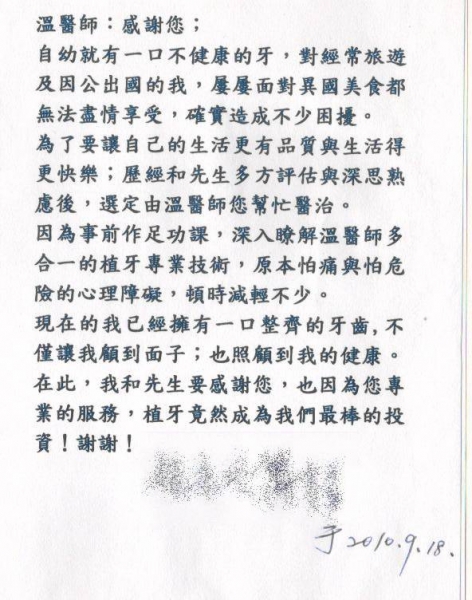 溫醫師：感謝您；
自幼就有一口不健康的牙，對經常旅遊
及因公出國的我，屢屢面對異國美食都
無法盡情享受，確實造成不少困擾。
為了要讓自己的生活更有品質與生活得
更快樂；歷經和先生多方評估與深思熟
慮後，選定由溫醫師您幫忙醫治。
因為事前作足功課，深入瞭解溫醫師多
合一的植牙專業技術，原本怕痛與怕危
險的心理障礙，頓時減輕不少。
現在的我已經擁有一口整齊的牙齒,不
僅讓我顧到面子；也照顧到我的健康。
在此，我和先生要感謝您，也因為您專
業的服務，植牙竟然成為我們最棒的投
資！謝謝！
于2010.9.18.